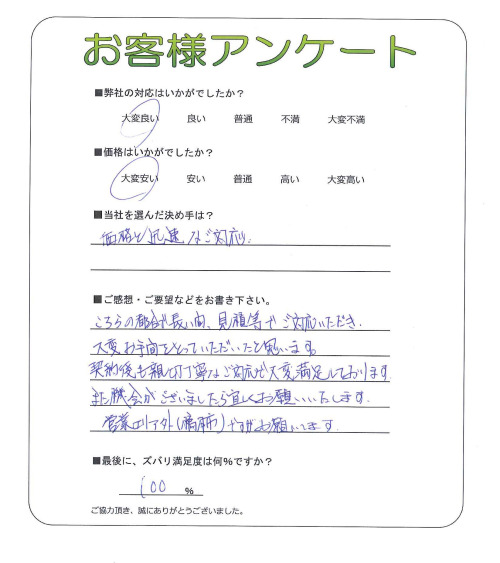 お客様アンケート
■弊社の対応はいかがでしたか?
大変良い 良い 普通 不満 大変不満
■価格はいかがでしたか?
大変安い 安い 普通 高い 大変高い
■当社を選んだ決め手は?
価格と迅速なご対応.
■ご感想・ご要望などをお書き下さい。
こちらの都合で長い間、見積等でご対応いただき.
大変お手間をとっていただいたと思います。
契約後も親切丁寧なご対応で大変満足しております
また機会がございましたら宜しくお願いいたします.
営業エリア外()ですがお願いします.
■最後に、ズバリ満足度は何%ですか?
100 %
ご協力頂き、誠にありがとうございました。